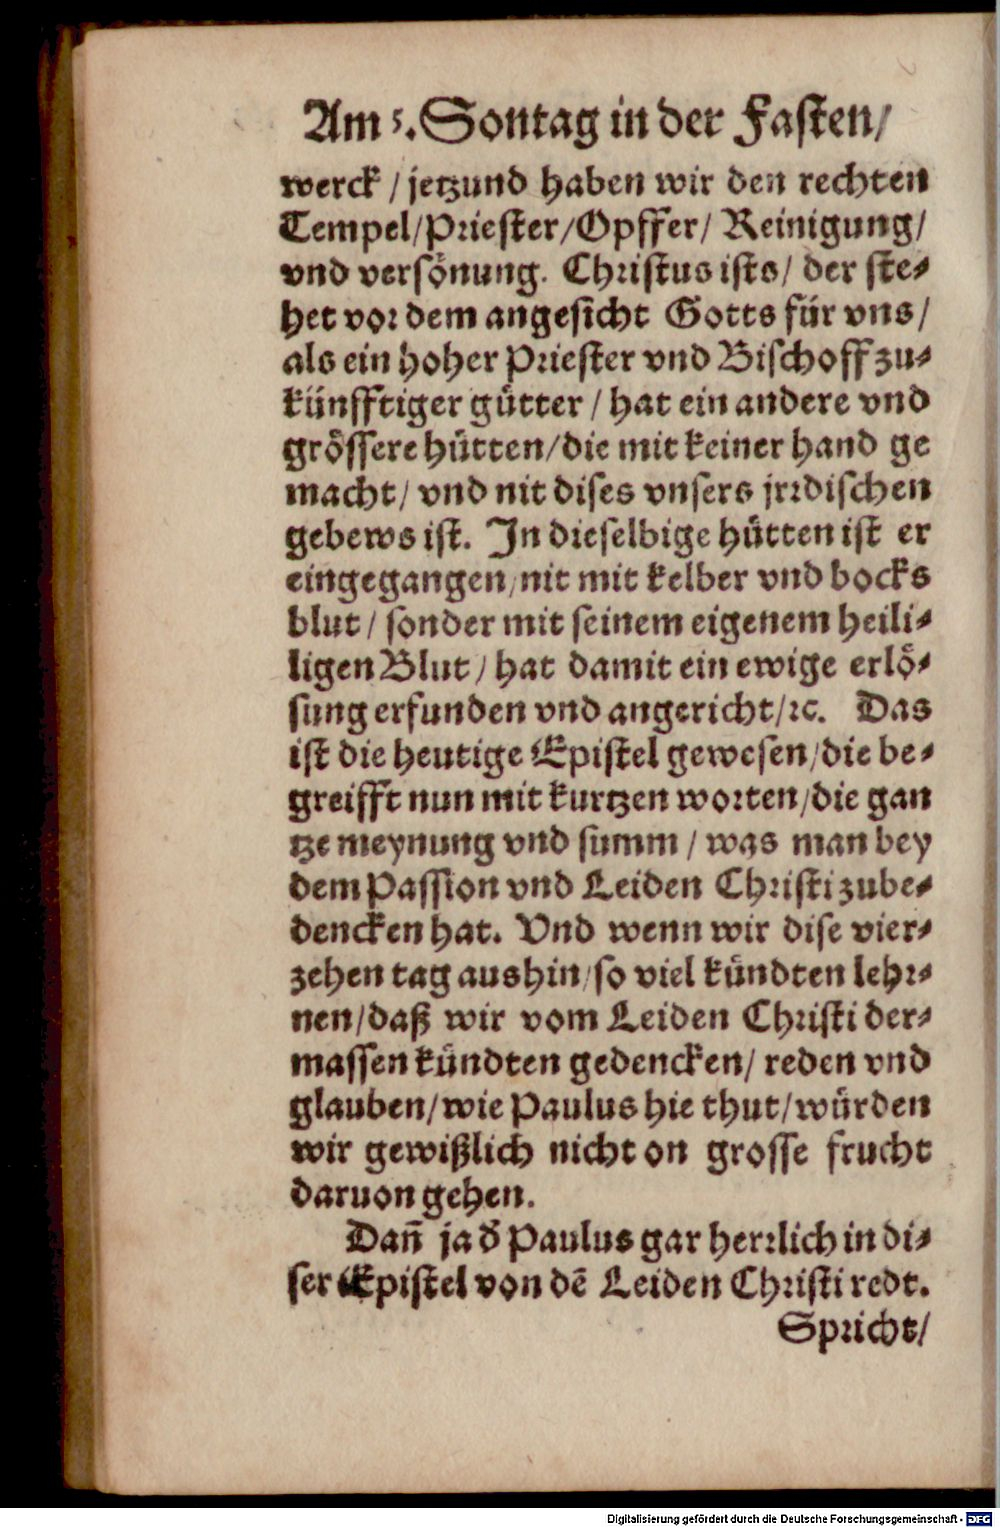 Am 5. Sontag in der Fasten/
werck / jetzund haben wir den rechten
Tempel/Priester/Opffer/ Reinigung/
vnd versönung. Christus ists/ der ste-
het vor dem angesicht Gotts für vns/
als ein hoher Priester vnd Bischoff zu-
künfftiger gütter / hat ein andere vnd
grössere hütten/die mit keiner hand ge
macht/ vnd nit dises vnsers jrrdischen
gebews ist. In dieselbige hütten ist er
eingegangen/nit mit kelber vnd bocks
blut / sonder mit seinem eigenem heili-
ligen Blut / hat damit ein ewige erlö-
sung erfunden vnd angericht/ꝛc. Das
ist die heutige Epistel gewesen/die be-
greifft nun mit kurtzen worten/die gan
tze meynung vnd summ / was man bey
dem Passion vnd Leiden Christi zube-
dencken hat. Vnd wenn wir dise vier-
zehen tag aushin/so viel kündten lehr-
nen/daß wir vom Leiden Christi der-
massen kündten gedencken/ reden vnd
glauben/wie Paulus hie thut/würden
wir gewißlich nicht on grosse frucht
daruon gehen.
Dañ ja d̕ Paulus gar herrlich in di-
ser Epistel von dē Leiden Christi redt.
Spricht/
Digitalisierung gefördert durch die Deutsche Forschungsgemeinschaft - DFG